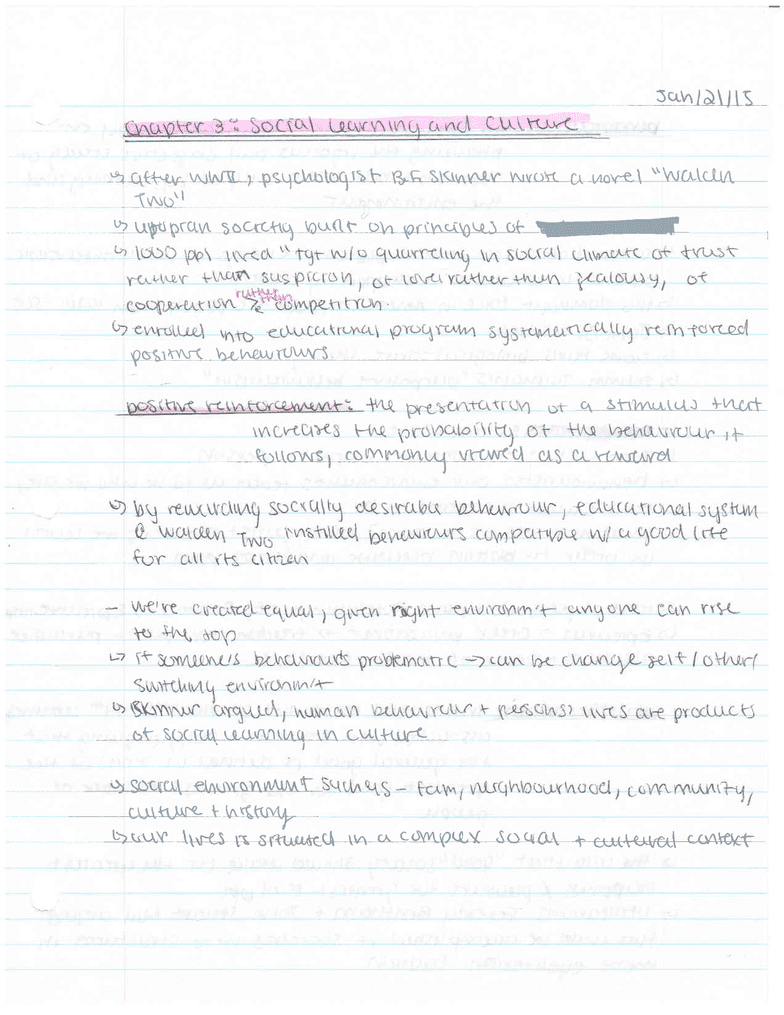 Jan/21/15
Chapter 3: Social Learning and Culture
↳ after WWII, psychologist B.F. Skinner wrote a novel "Walden
Two"
↳ utopian society built on principles of
↳ 1000 ppl lived "tgt w/o quarreling in social climate of trust
rather than suspicion, of love rather than jealousy, of
cooperation rather than competition.
↳ enrolled into educational program systematically reinforced
positive behaviours.
positive reinforcement: the presentation of a stimulus that
increases the probability of the behaviour it
follows, commonly viewed as a reward
↳ by rewarding socially desirable behaviour, educational system
@ Walden Two instilled behaviours compatible w/ a good life
for all its citizen
- we're created equal, given right environm't anyone can rise
to the top
↳ if someone's behaviour's problematic → can be change self/other/
switching environm't
↳ Skinner argued, human behaviour + persons' lives are products
of social learning in culture
↳ social environment such as - fam, neighbourhood, community,
culture + history
↳ our lives is situated in a complex social + cultural context